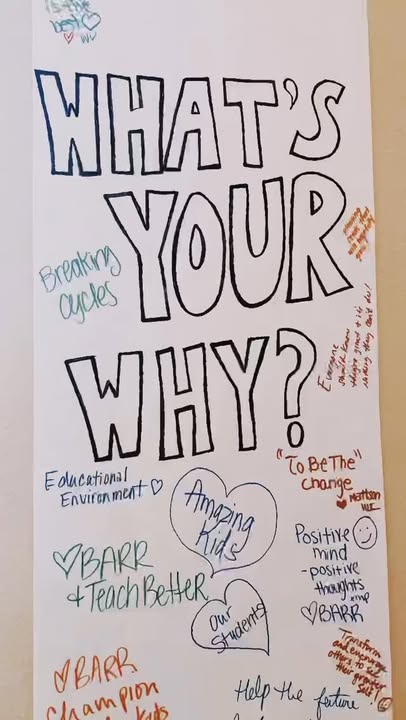 is the
best
WHAT'S
YOUR
WHY?
Breaking
cycles
Everyone
should know
they're great + it's
nothing they can't do!
Educational
Environment
Amazing
Kids
"To Be The"
Change
Mattson
WI
Positive
mind
-positive
thoughts
BARR
BARR
+ Teach Better
our
students
Transform
and encourage
others to see
their greater
self!
BARR
Champion
kids
Help the future